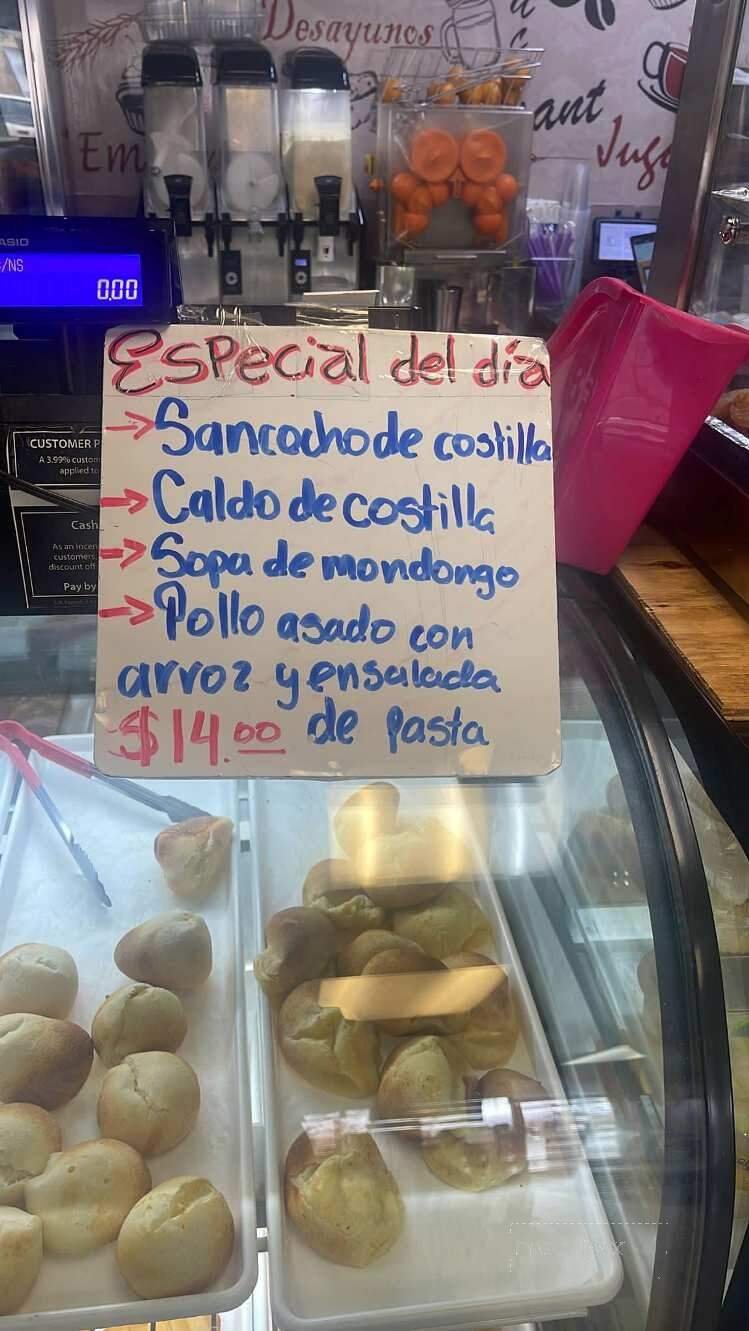 Desayunos
Em
ant
Jugo
CASIO
/NS
0.00
Especial del día
→Sancocho de costilla
→Caldo de costilla
→Sopa de mondongo
→Pollo asado con
arroz y ensalada
$14.00 de pasta
CUSTOMER P
A 3.99% custom
applied to
Cash
As an incen
customers,
discount off
Pay by